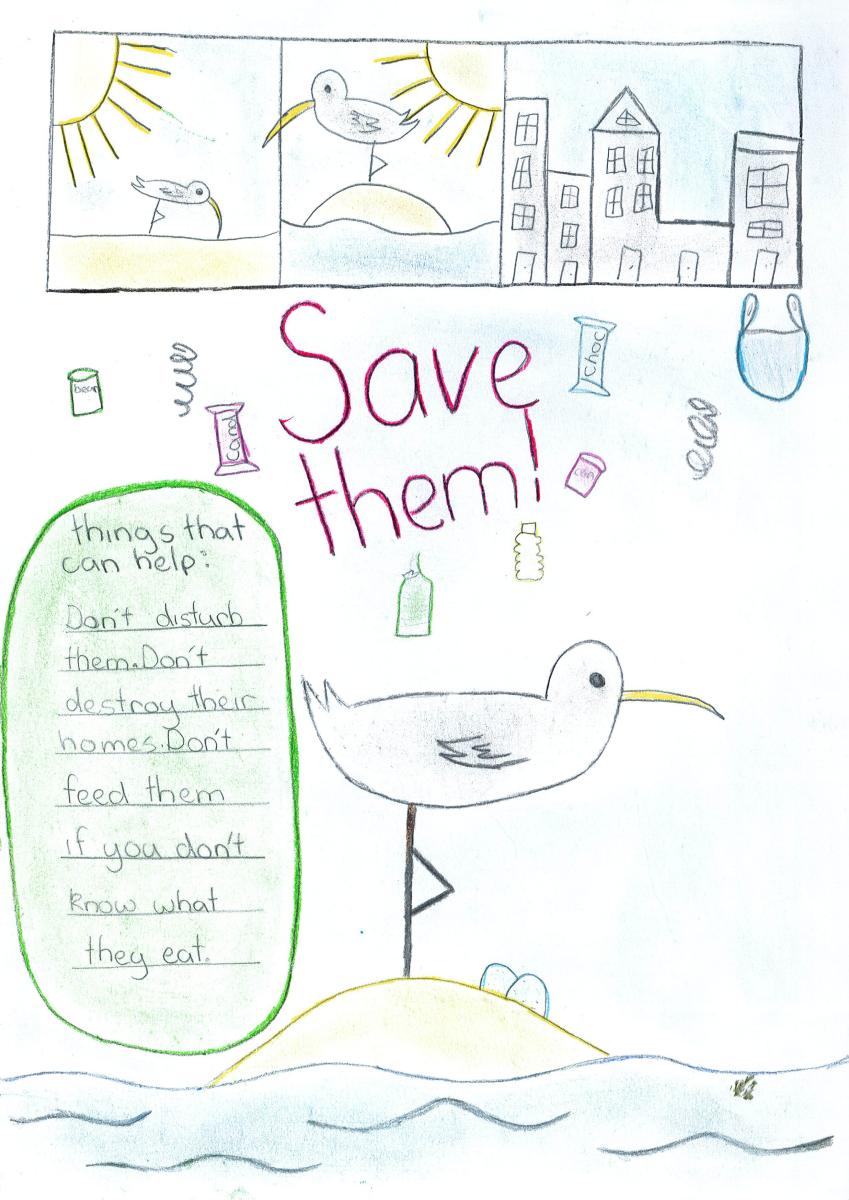 Choc
Save
them!
things that
can help:
Don't disturb
them.Don't
destroy their
homes.Don't
feed them
if you don't
know what
they eat.